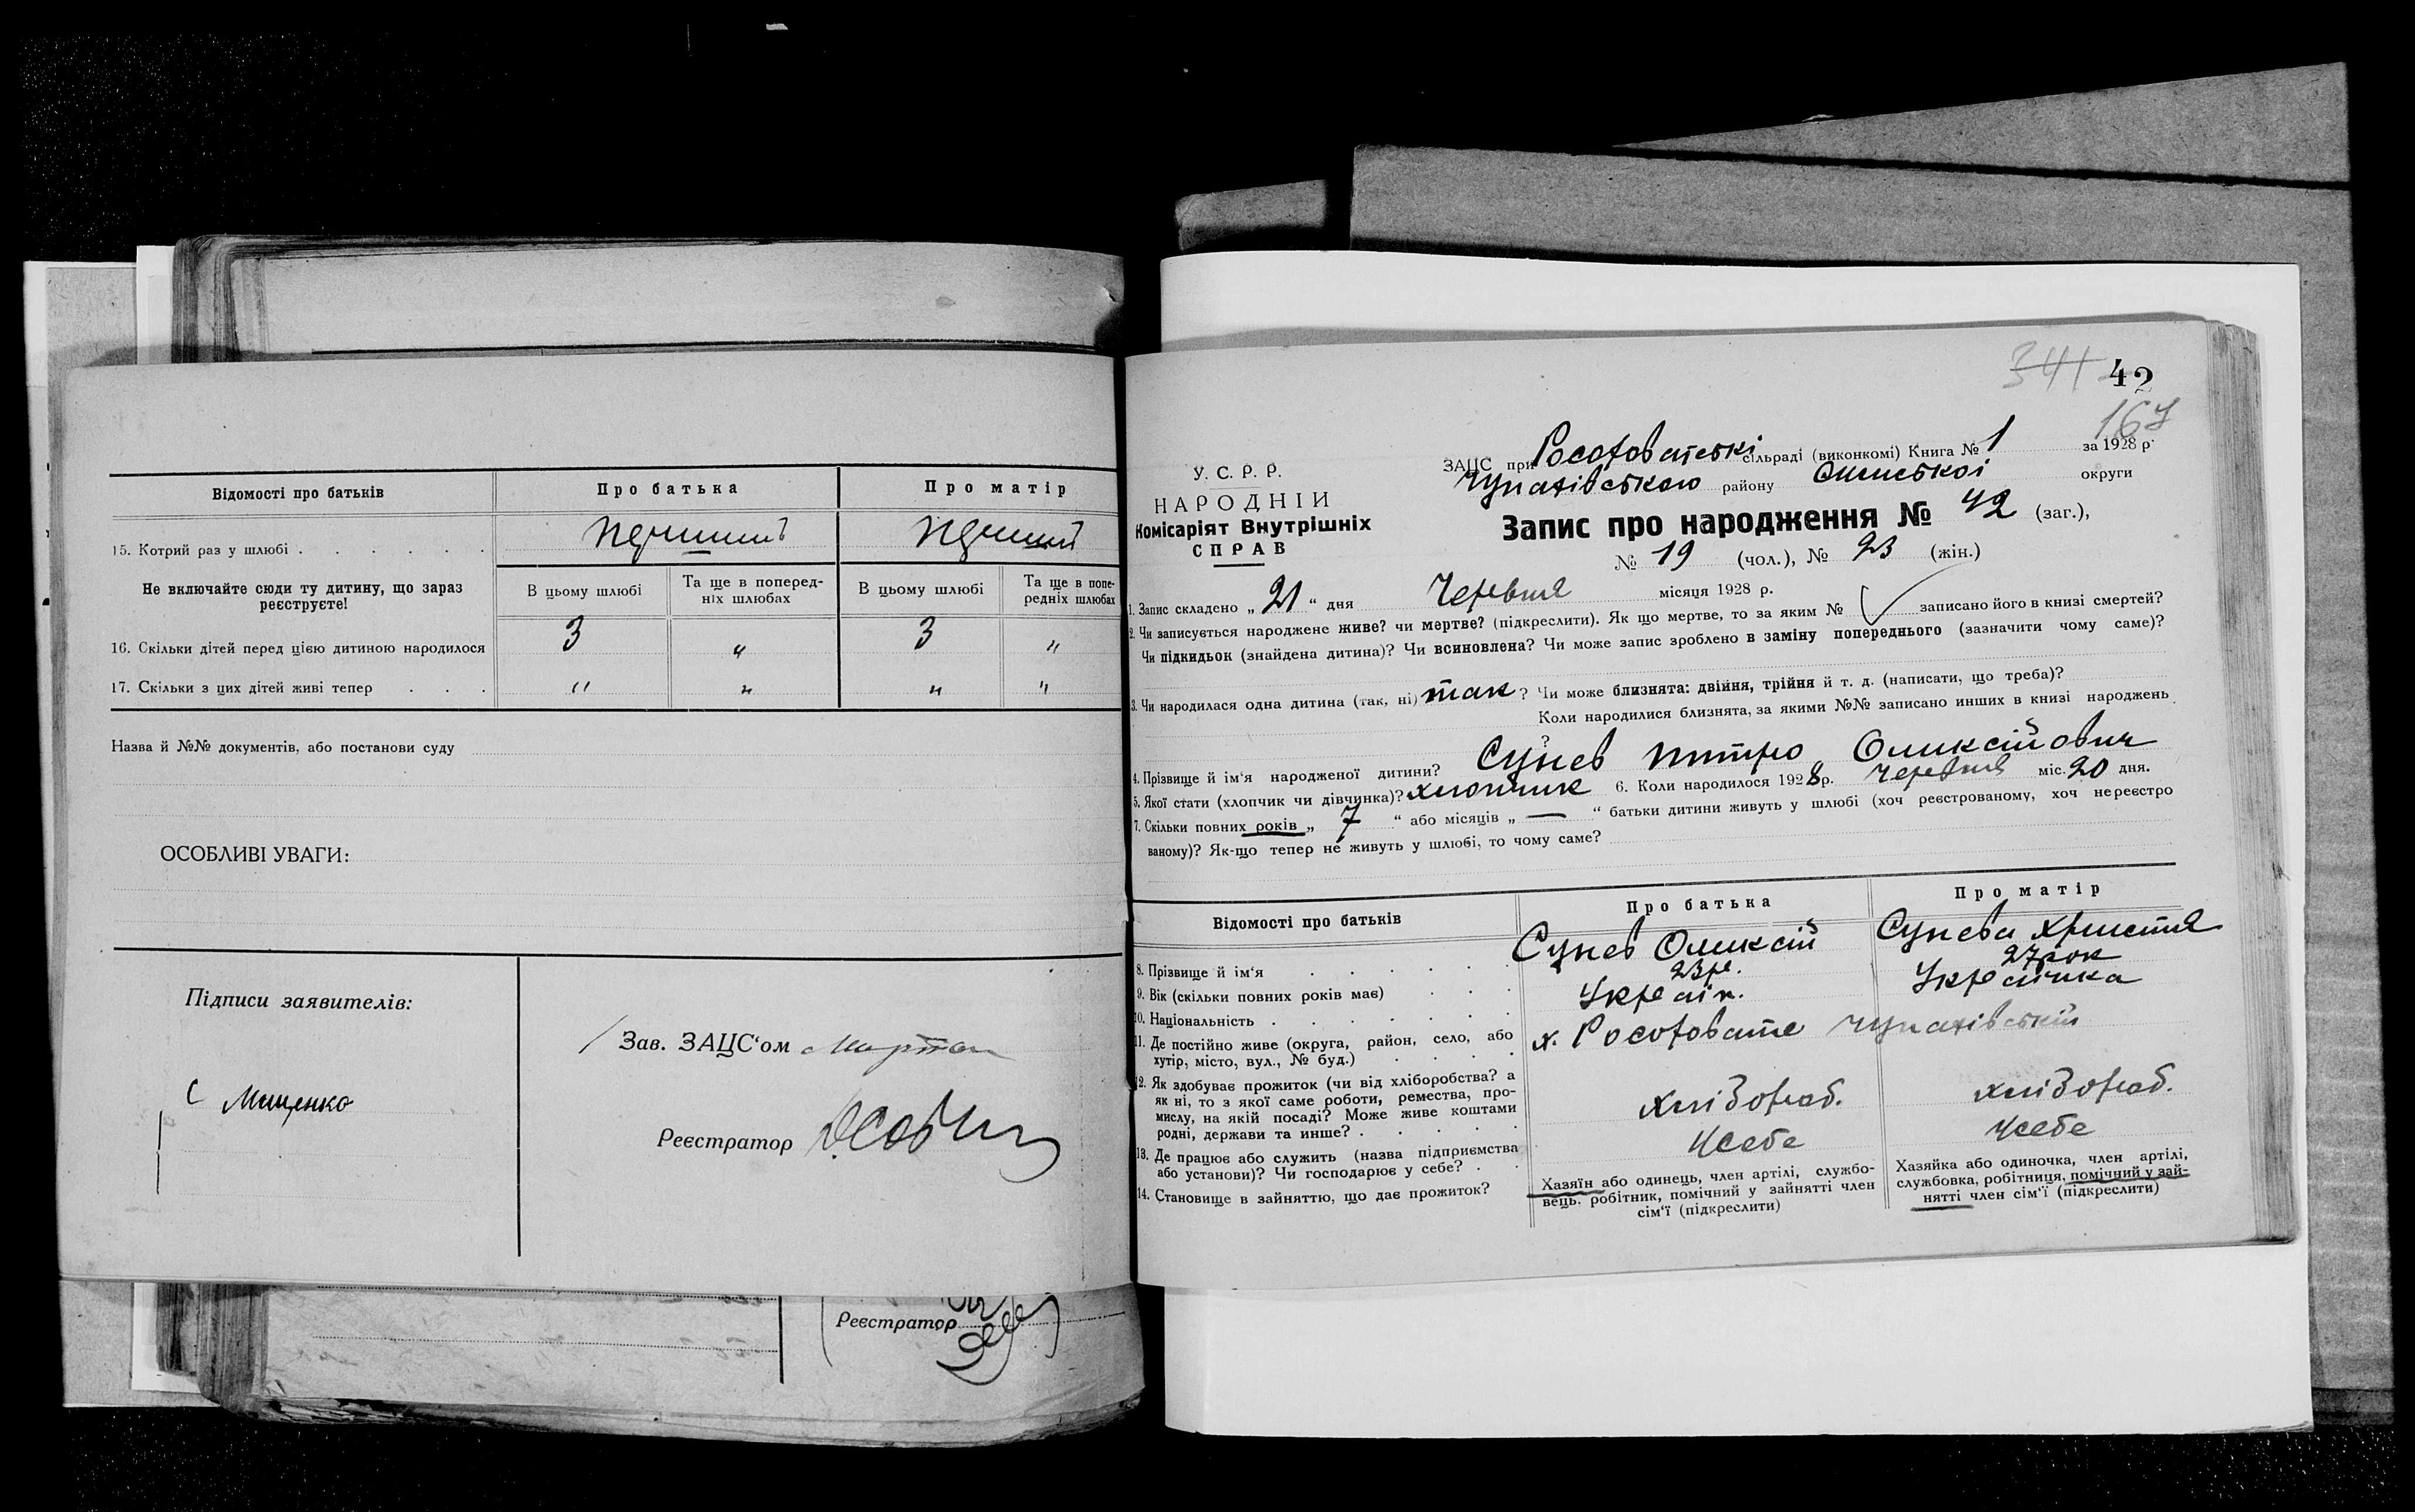 Відомості про батьків
Про батька
Про матір
15. Котрий раз у шлюбі
Перший
Перший
Не включайте сюди ту дитину, що зараз
реєструєте!
В цьому шлюбі
Та ще в поперед-
ніх шлюбах
В цьому шлюбі
Та ще в попе-
редніх шлюбах
16. Скільки дітей перед цією дитиною народилося
3 " 3 "
17. Скільки з цих дітей живі тепер . . .
" " " "
Назва й №№ документів, або постанови суду
ОСОБЛИВІ УВАГИ:
Підписи заявителів:
Мищенко
Зав. ЗАЦС‘ом
Реєстратор
Реєстратор
341 42
167
У. С. Р. Р.
НАРОДНІЙ
Комісаріят Внутрішніх
СПРАВ
ЗАЦС при Росоховатські сільраді (виконкомі) Книга № 1 за 1928 р.
Чупахівського району Сумської округи
Запис про народження № 42 (заг.),
№ 19 (чол.), № 23 (жін.)
1. Запис складено „ 21 “ дня Червня місяця 1928 р.
2. Чи записується народжене живе? чи мертве? (підкреслити). Як що мертве, то за яким № записано його в книзі смертей?
Чи підкидьок (знайдена дитина)? Чи всиновлена? Чи може запис зроблено в заміну попереднього (зазначити чому саме)?
3. Чи народилася одна дитина (так, ні) так ? Чи може близнята: двійня, трійня й т. д. (написати, що треба)?
Коли народилися близнята, за якими №№ записано инших в книзі народжень
?
4. Прізвище й ім‘я народженої дитини? Сунев Митро Оликсійович
5. Якої стати (хлопчик чи дівчинка)? хлопчик 6. Коли народилося 1928 р. Червня міс. 20 дня.
7. Скільки повних років „ 7 “ або місяців „ — “ батьки дитини живуть у шлюбі (хоч реєстрованому, хоч нереєстро
ваному)? Як-що тепер не живуть у шлюбі, то чому саме?
Відомості про батьків
Про батька
Про матір
8. Прізвище й ім‘я . . . . .
Сунев Оликсій
Сунева Христя
9. Вік (скільки повних років має) . . .
23 р.
27 рок
10. Національність . . . . . .
Україн.
Українка
11. Де постійно живе (округа, район, село, або
хутір, місто, вул., № буд.) . . . .
х. Росоховате Чупахівській
12. Як здобуває прожиток (чи від хліборобства? а
як ні, то з якої саме роботи, ремества, про-
мислу, на якій посаді? Може живе коштами
родні, держави та инше? . . . . .
хлібороб.
хлібороб.
13. Де працює або служить (назва підприємства
або установи)? Чи господарює у себе? . .
Усебе
Усебе
14. Становище в зайняттю, що дає прожиток?
Хазяїн або одинець, член артілі, службо-
вець, робітник, помічний у зайнятті член
сім‘ї (підкреслити)
Хазяйка або одиночка, член артілі,
службовка, робітниця, помічний у зай-
нятті член сім‘ї (підкреслити)